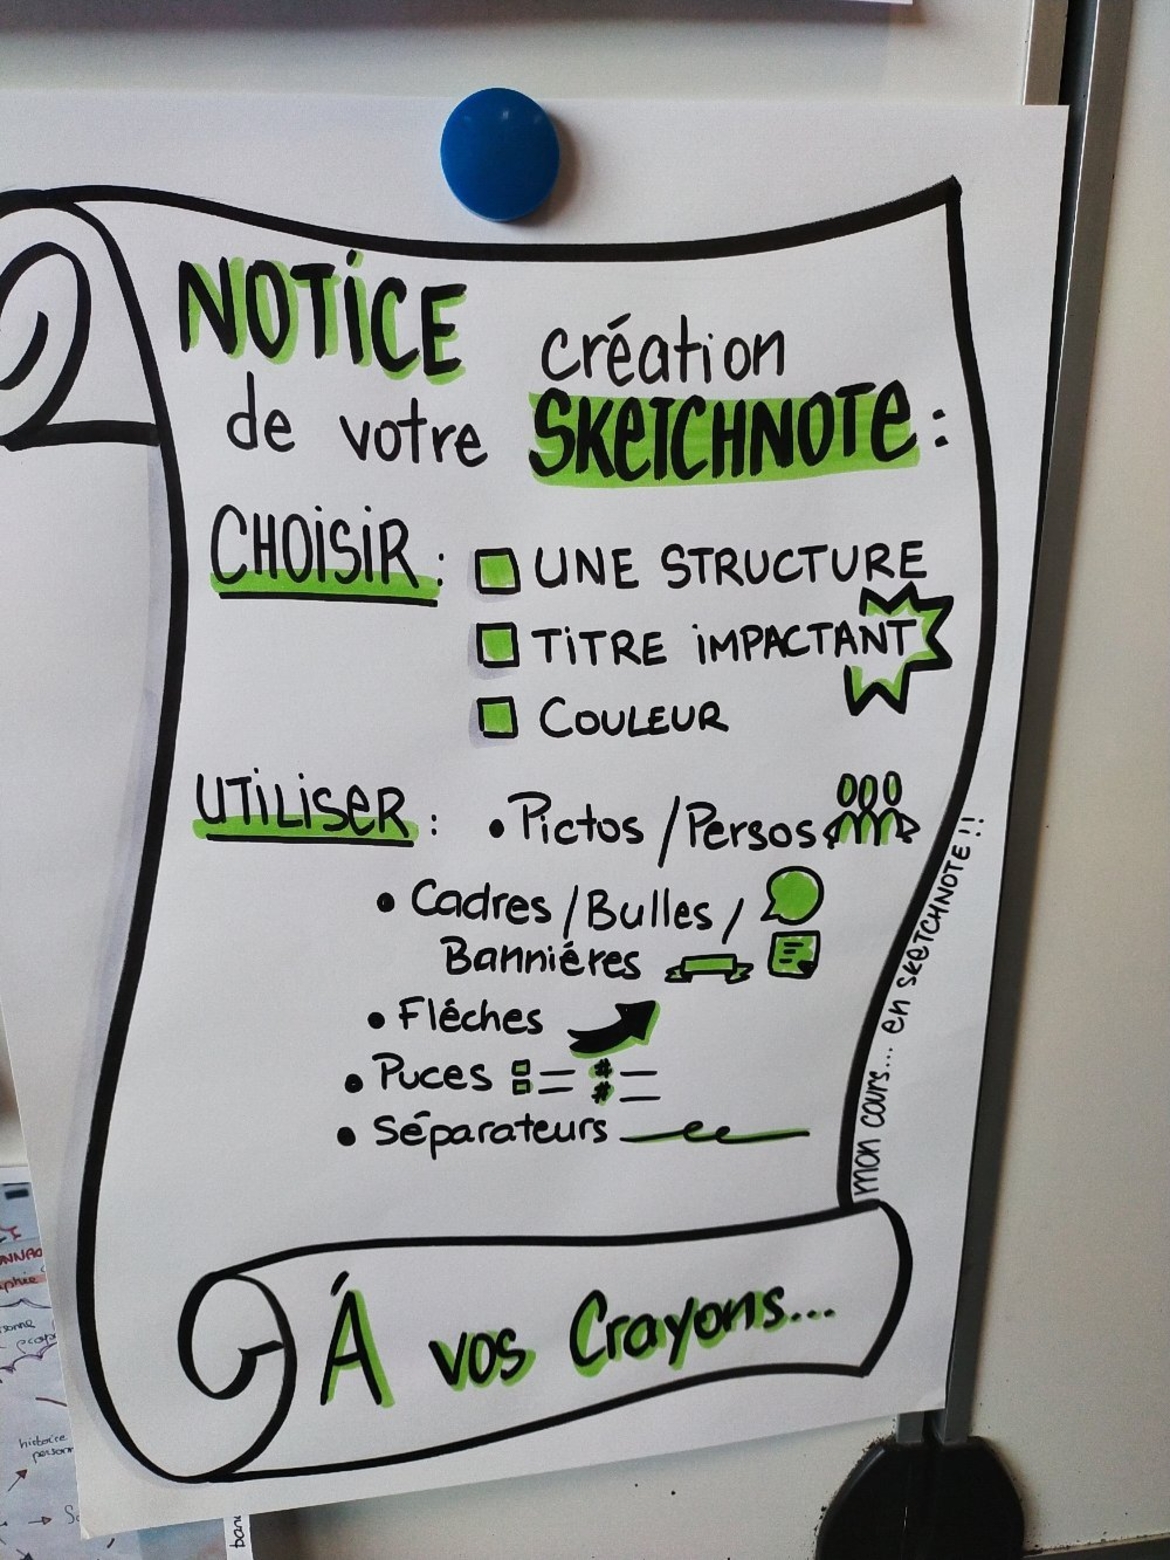 NOTiCE création
de votre SKeTCHNOTe :
CHOiSiR : UNE STRUCTURE
TiTRE iMPACTANT
COULEUR
UTiLiSeR : • Pictos / Persos
• Cadres / Bulles /
Banniéres
• Fléches
• Puces
• Séparateurs
mon cours... en SkeTCHNOTE !!
Á vos Crayons...
historice